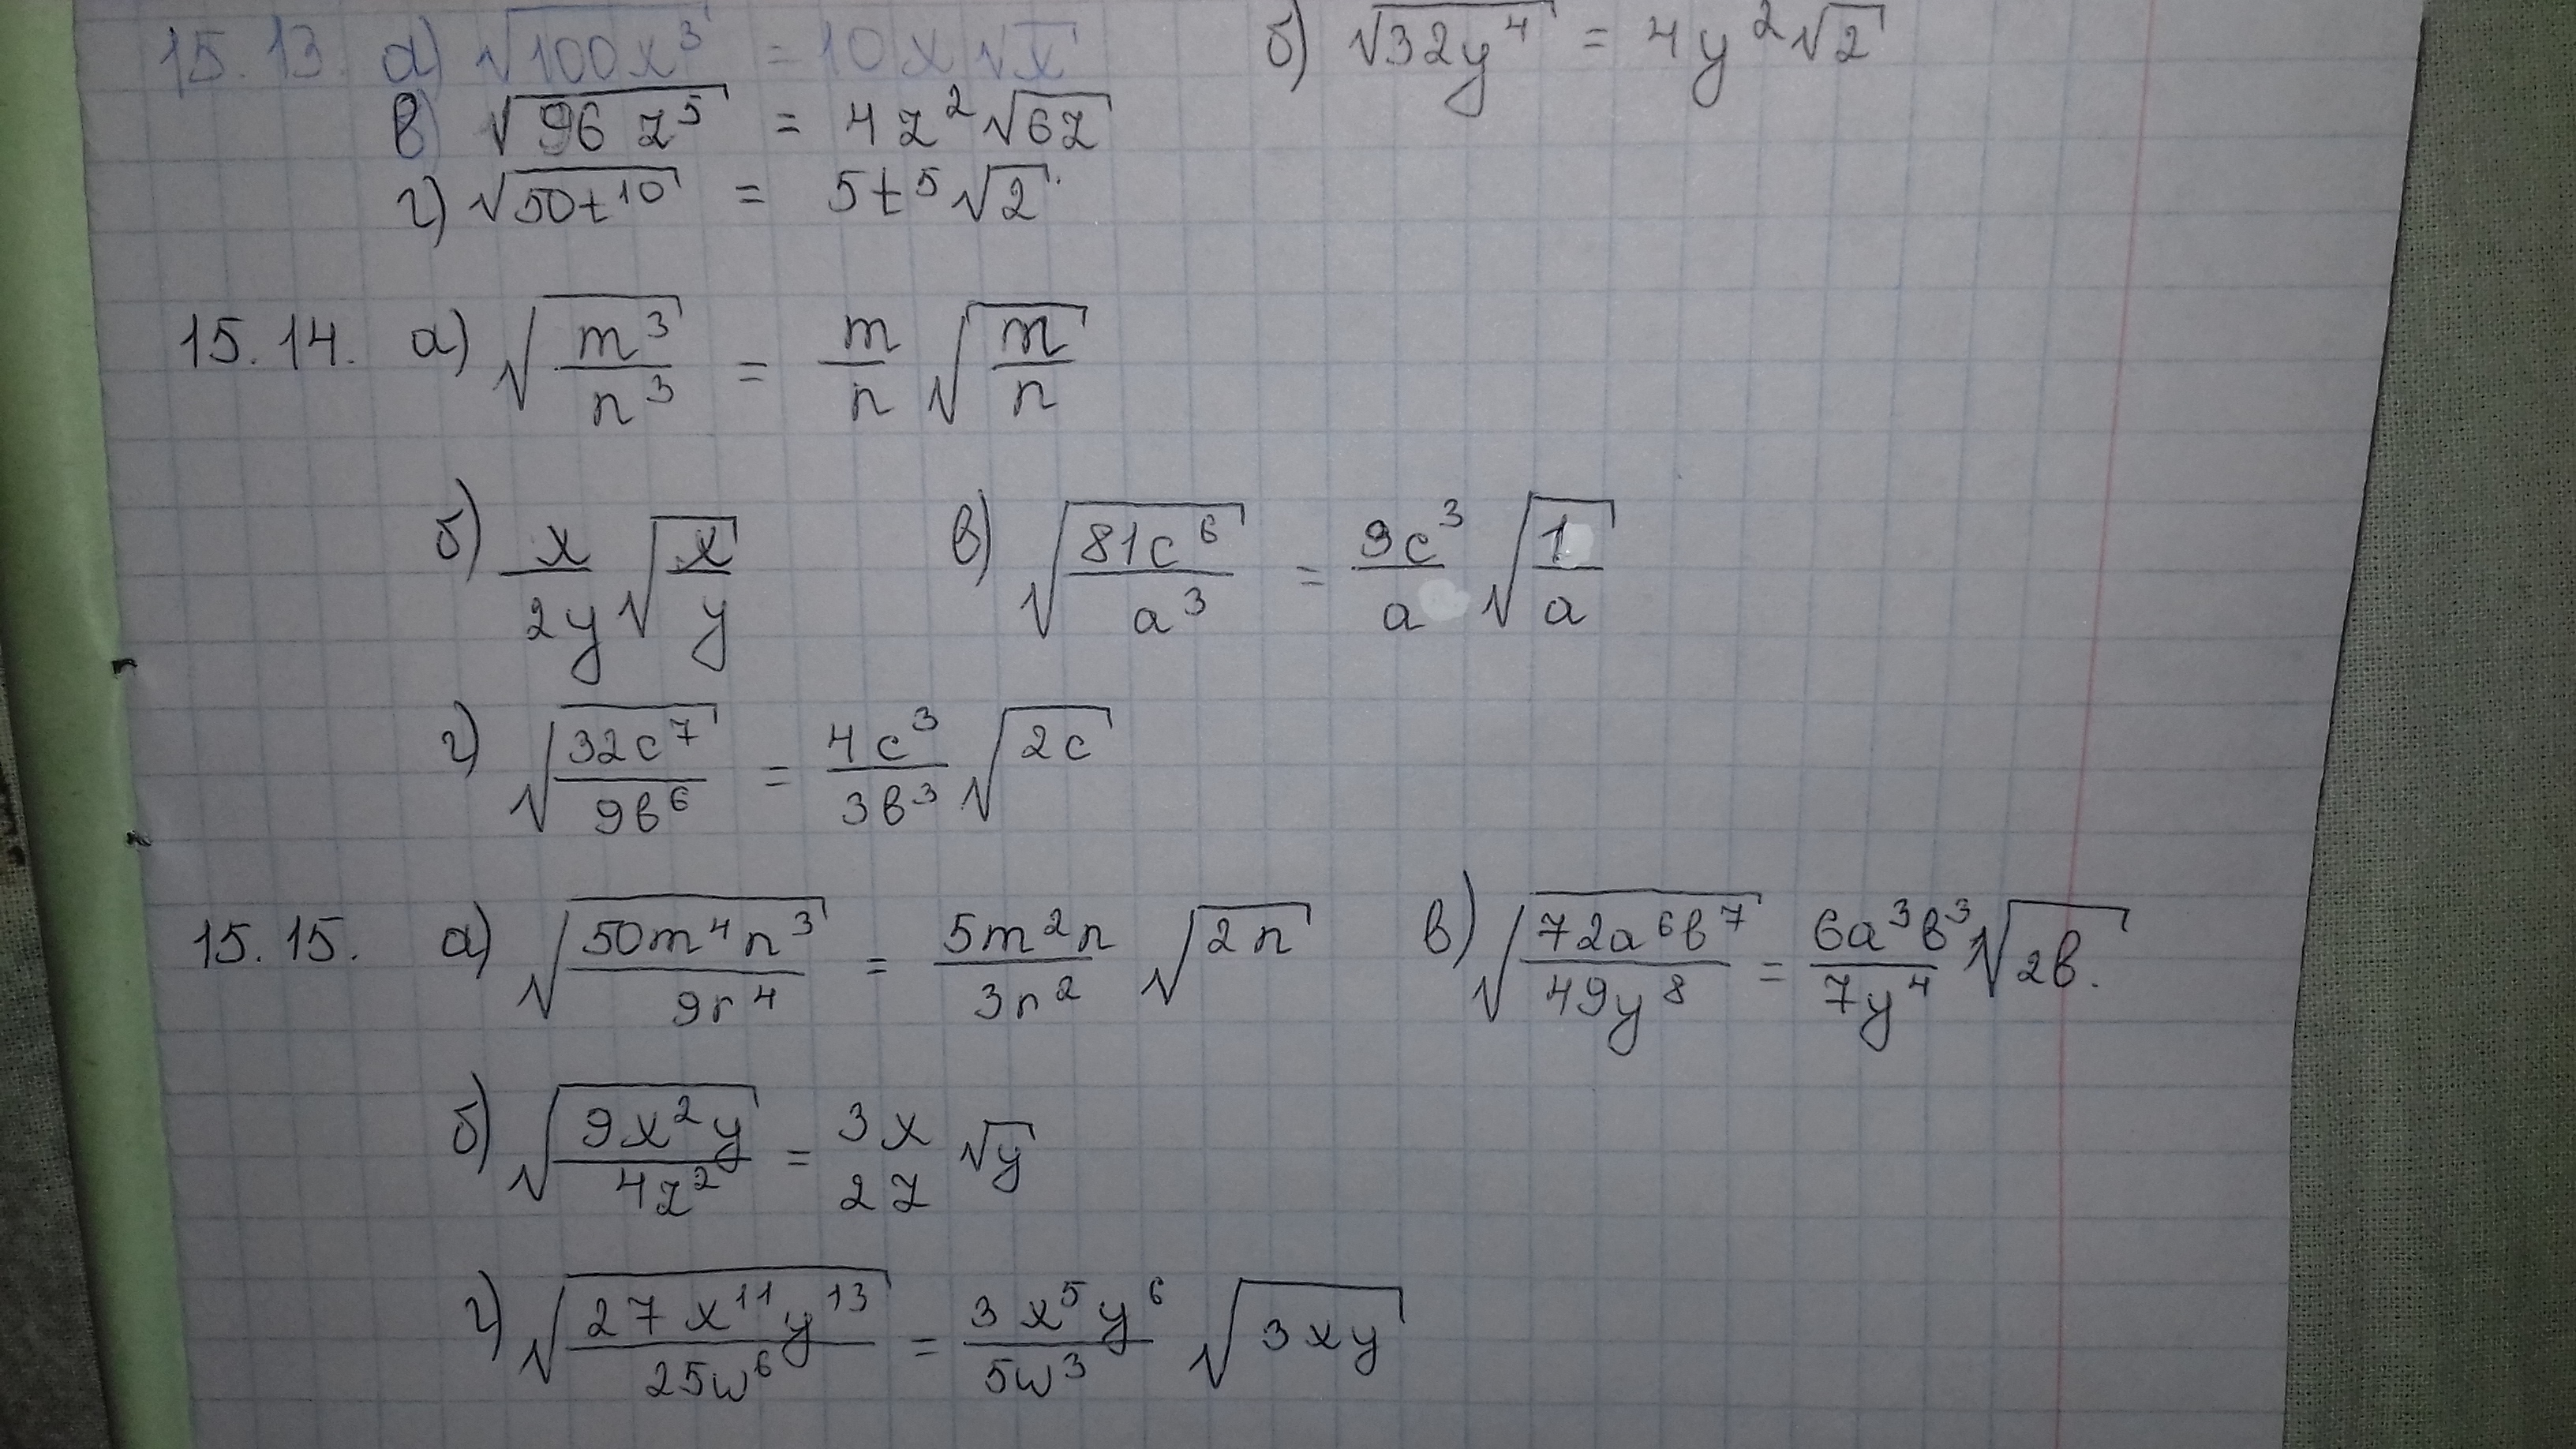 15.13. а) √100x³ = 10x√x б) √32y⁴ = 4y²√2
в) √96z⁵ = 4z²√6z
г) √50t¹⁰ = 5t⁵√2
15.14. а) √(m³/n³) = m/n √(m/n)
б) x/2y √(x/y) в) √(81c⁶/a³) = 9c³/a √(1/a)
г) √(32c⁷/9b⁶) = 4c³/3b³ √2c
15.15. а) √(50m⁴n³/9r⁴) = 5m²n/3r² √2n в) √(72a⁶b⁷/49y⁸) = 6a³b³/7y⁴ √2b.
б) √(9x²y/4z²) = 3x/2z √y
г) √(27x¹¹y¹³/25w⁶) = 3x⁵y⁶/5w³ √3xy